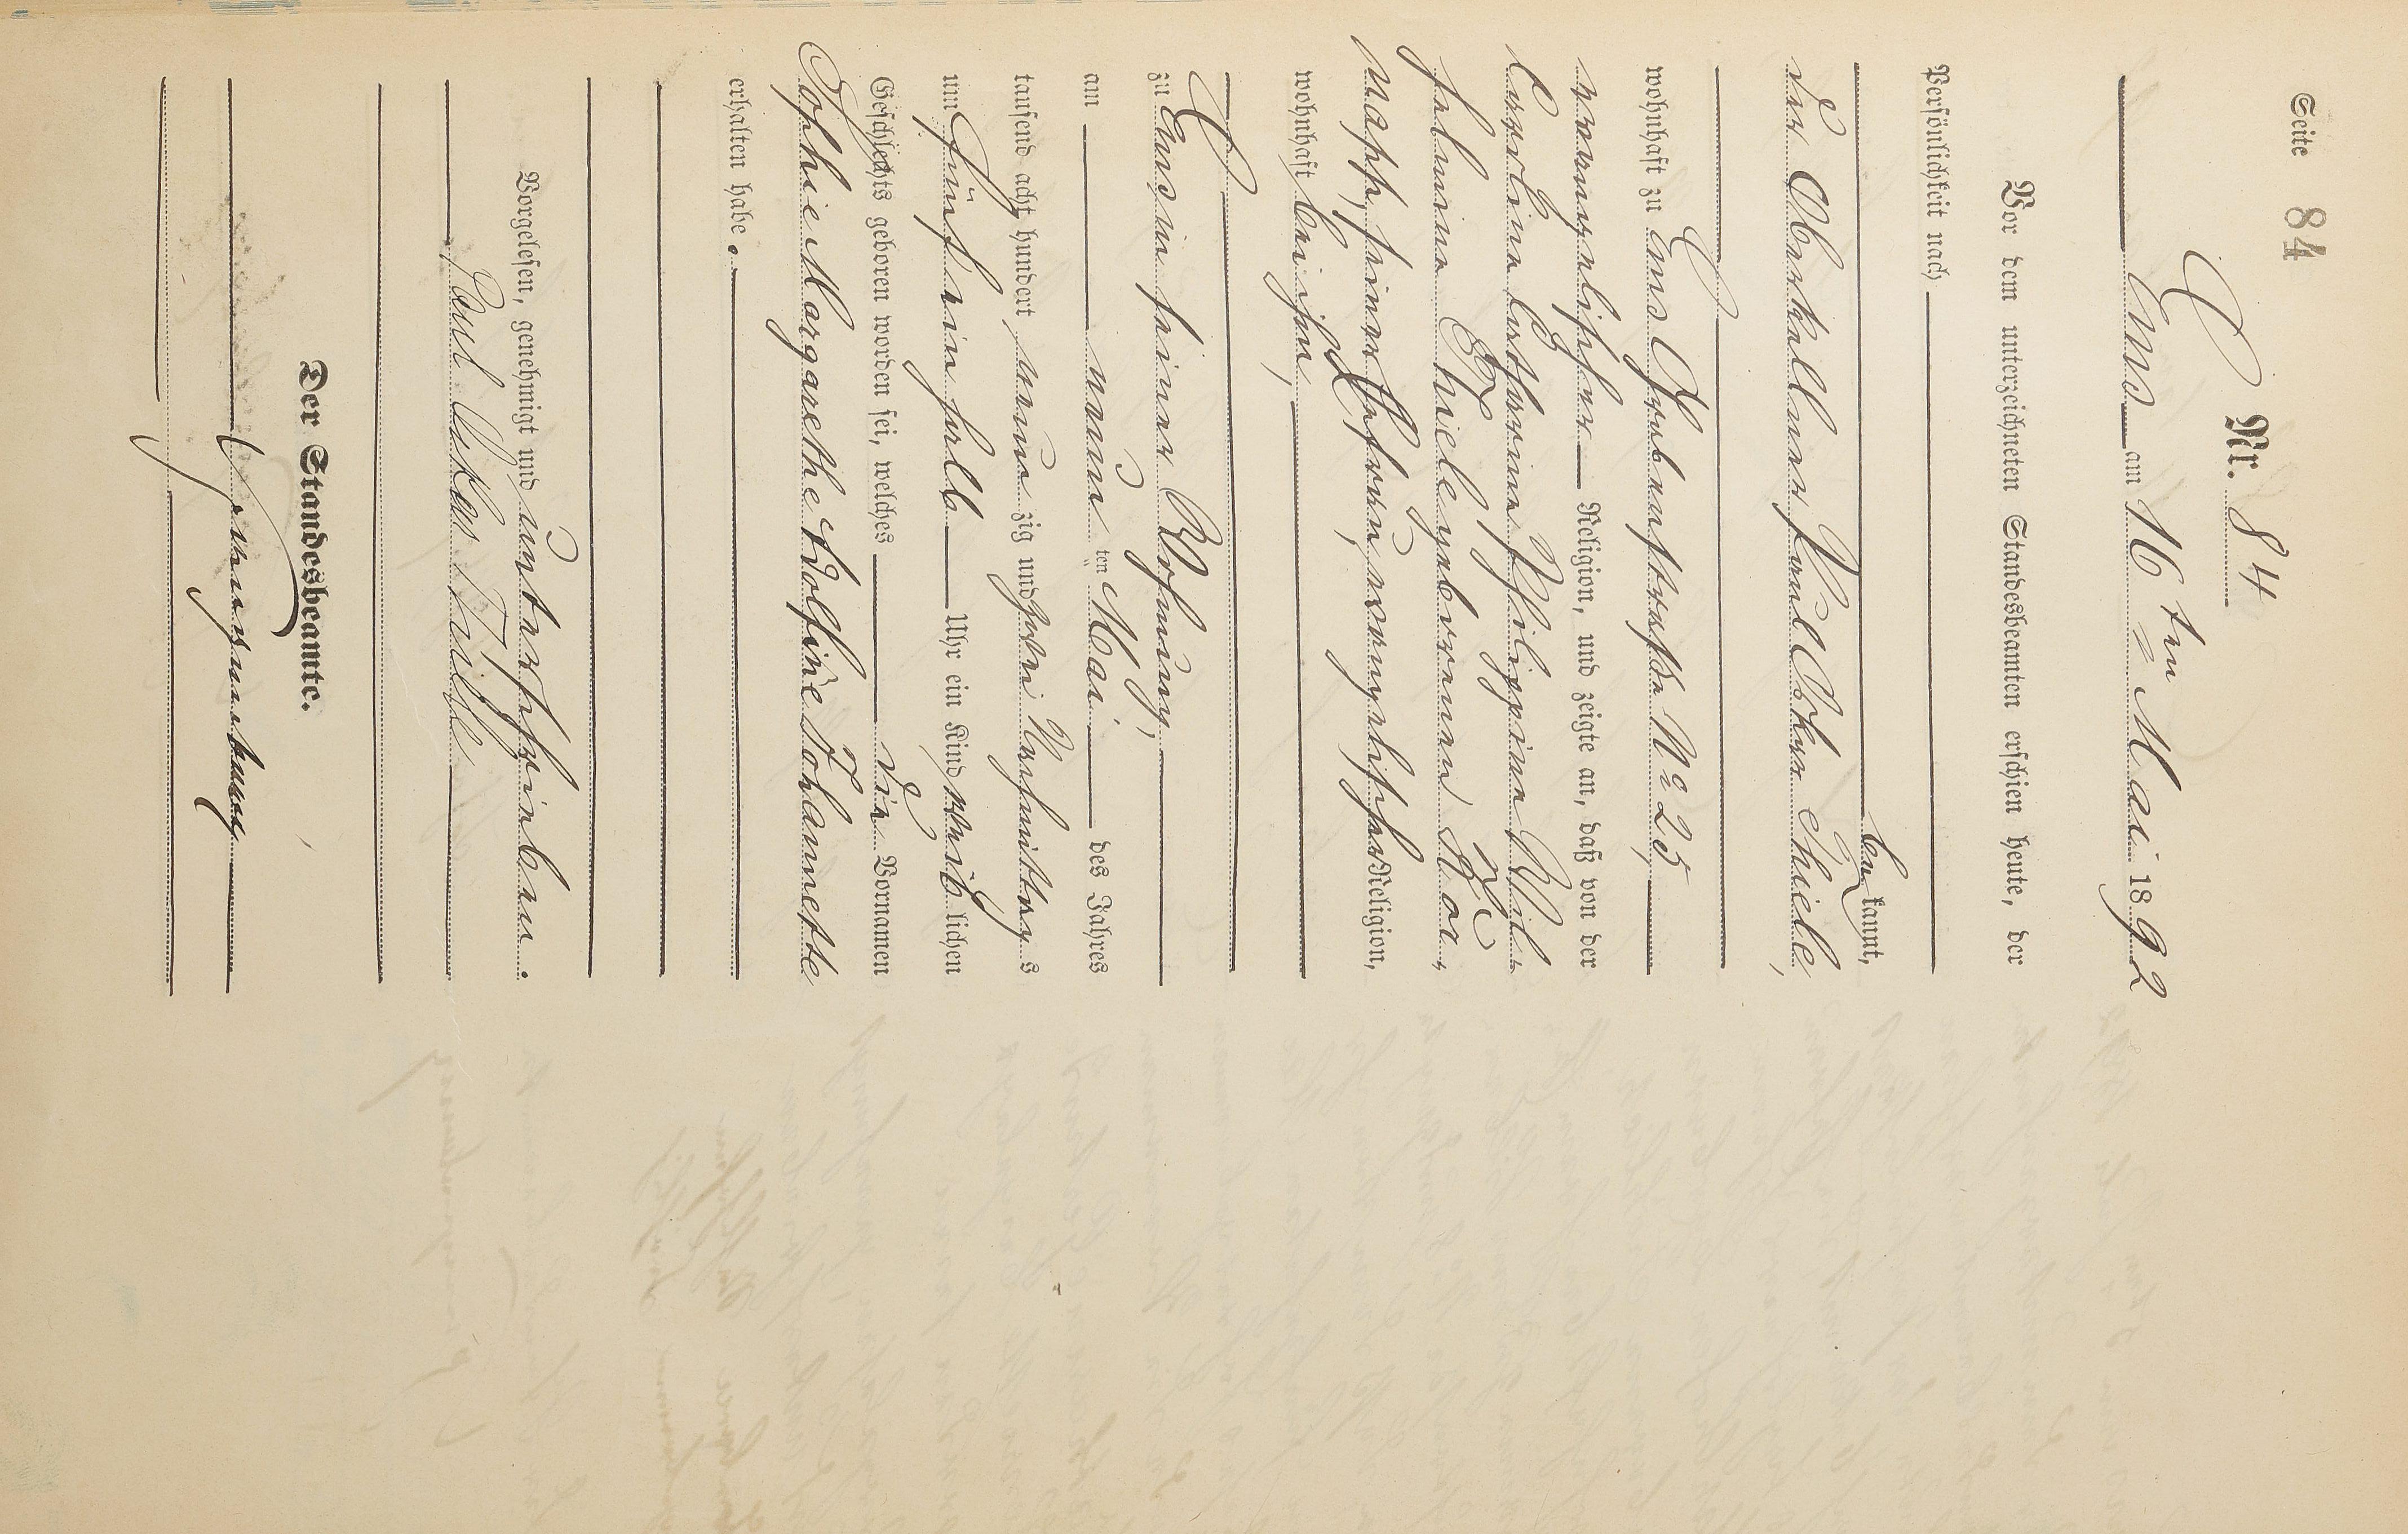 Seite 84
Nr. 84
Ems am 16ten Mai 1892
Vor dem unterzeichneten Standesbeamten erschien heute, der
Persönlichkeit nach
bekannt,
der Oberkellner Paul Oskar Thiele,
wohnhaft zu Ems Grabenstraße No 25
evangelischer Religion, und zeigte an, daß von der
Caroline Catharine Philippine Wil-
helmine Thiele geborenen
seiner Ehefrau, evangelischer Religion,
wohnhaft bei ihm,
zu Ems in seiner Wohnung,
am neun ten Mai des Jahres
tausend acht hundert neun zig und zwei Vormittag s
um fünf ein halb Uhr ein Kind weib lichen
Geschlechts geboren worden sei, welches die Vornamen
Sophie Margarethe Adolfine Johannette
erhalten habe.
Vorgelesen, genehmigt und unterschrieben.
Paul Oskar Thiele
Der Standesbeamte.